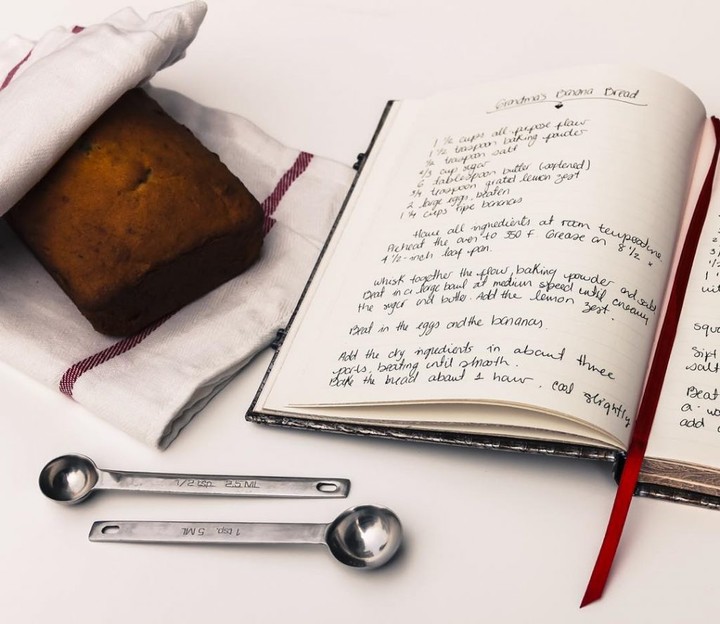 Grandma's Banana Bread
1 ½ cups all-purpose flour
1 ½ teaspoon baking powder
½ teaspoon salt
2/3 cup sugar
6 tablespoon butter (softened)
3/4 teaspoon grated lemon zest
2 large eggs, beaten
1 ¼ cups ripe bananas
Have all ingredients at room temperature.
Preheat the oven to 350 F. Grease an 8 ½ ×
4 ½-inch loaf pan.
Whisk together the flour, baking powder and salt
Beat in a large bowl at medium speed until creamy
the sugar and butter. Add the lemon zest.
Beat in the eggs and the bananas.
Add the dry ingredients in about three
parts, beating until smooth.
Bake the bread about 1 hour. Cool slightly
squa
Sift
salt
Beat
a wo
add
1/2 tsp. 2.5 ML
1 tsp. 5 ML